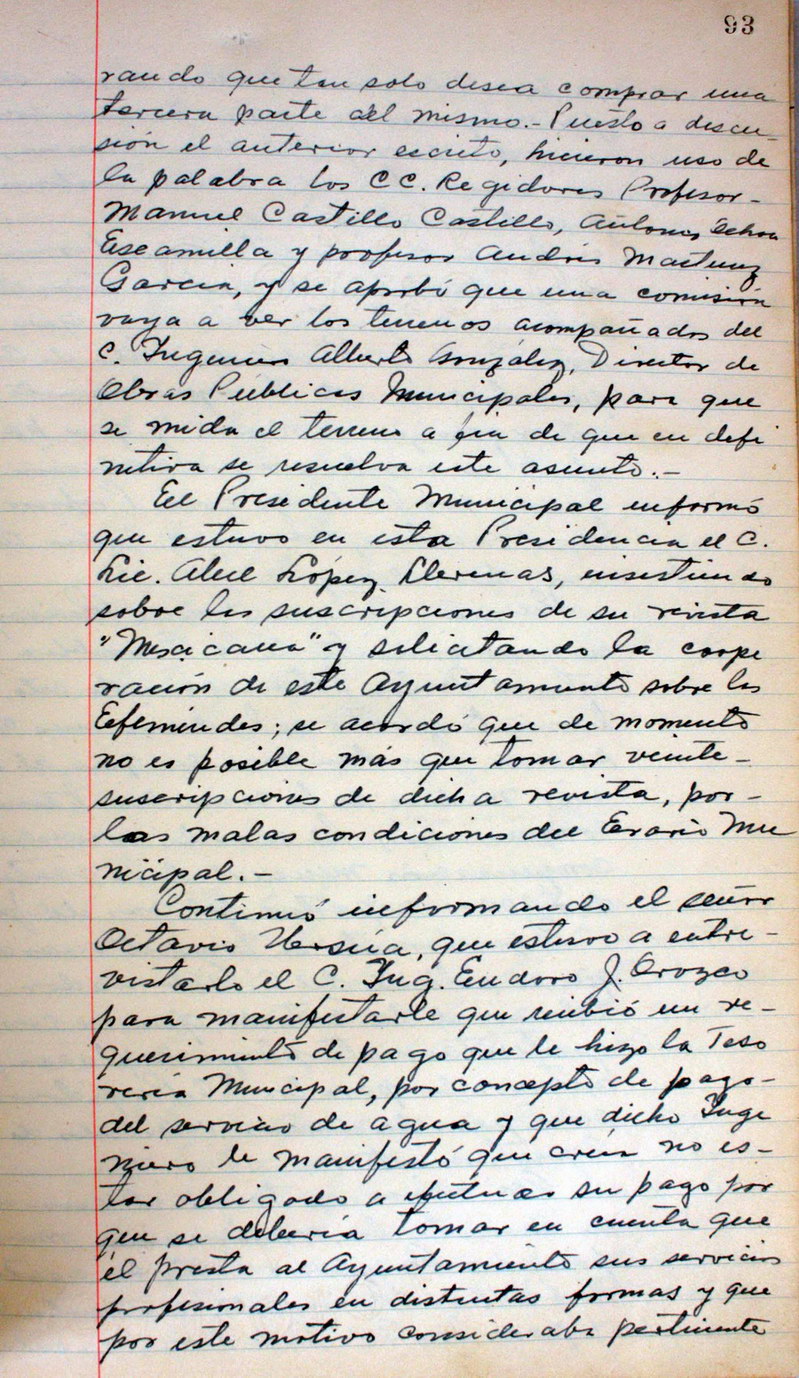 93
rando que tan solo desea comprar una
tercera parte del mismo.- Puesto a discu-
sión el anterior escrito, hicieron uso de
la palabra los CC. Regidores Profesor-
Manuel Castillo Castillo, Antonio Ochoa
Escamilla y profesor Andrés Martínez
García, y se aprobó que una comisión
vaya a ver los terrenos acompañados del
C. Ingeniero Alberto González, Director de
Obras Públicas Municipales, para que
se mida el terreno a fin de que en defi
nitiva se resuelva este asunto.-
El Presidente Municipal informó
que estuvo en esta Presidencia el C.
Lic. Abel López Llerenas, insistiendo
sobre las suscripciones de su revista
"Mexicana" y solicitando la coope
ración de este Ayuntamiento sobre las
Efemérides; se acordó que de momento
no es posible más que tomar veinte-
suscripciones de dicha revista, por-
las malas condiciones del Erario Mu
nicipal.-
Continuó informando el señor
Octavio Ursúa, que estuvo a entre-
vistarlo el C. Ing. Eudoro J. Orozco
para manifestarle que recibió un re-
querimiento de pago que le hizo la Teso
rería Municipal, por concepto de pago-
del servicio de agua y que dicho Inge
niero le manifestó que creía no es-
tar obligado a efectuar su pago por
que se debería tomar en cuenta que
él presta al Ayuntamiento sus servicios
profesionales en distintas formas y que
por este motivo consideraba pertinente